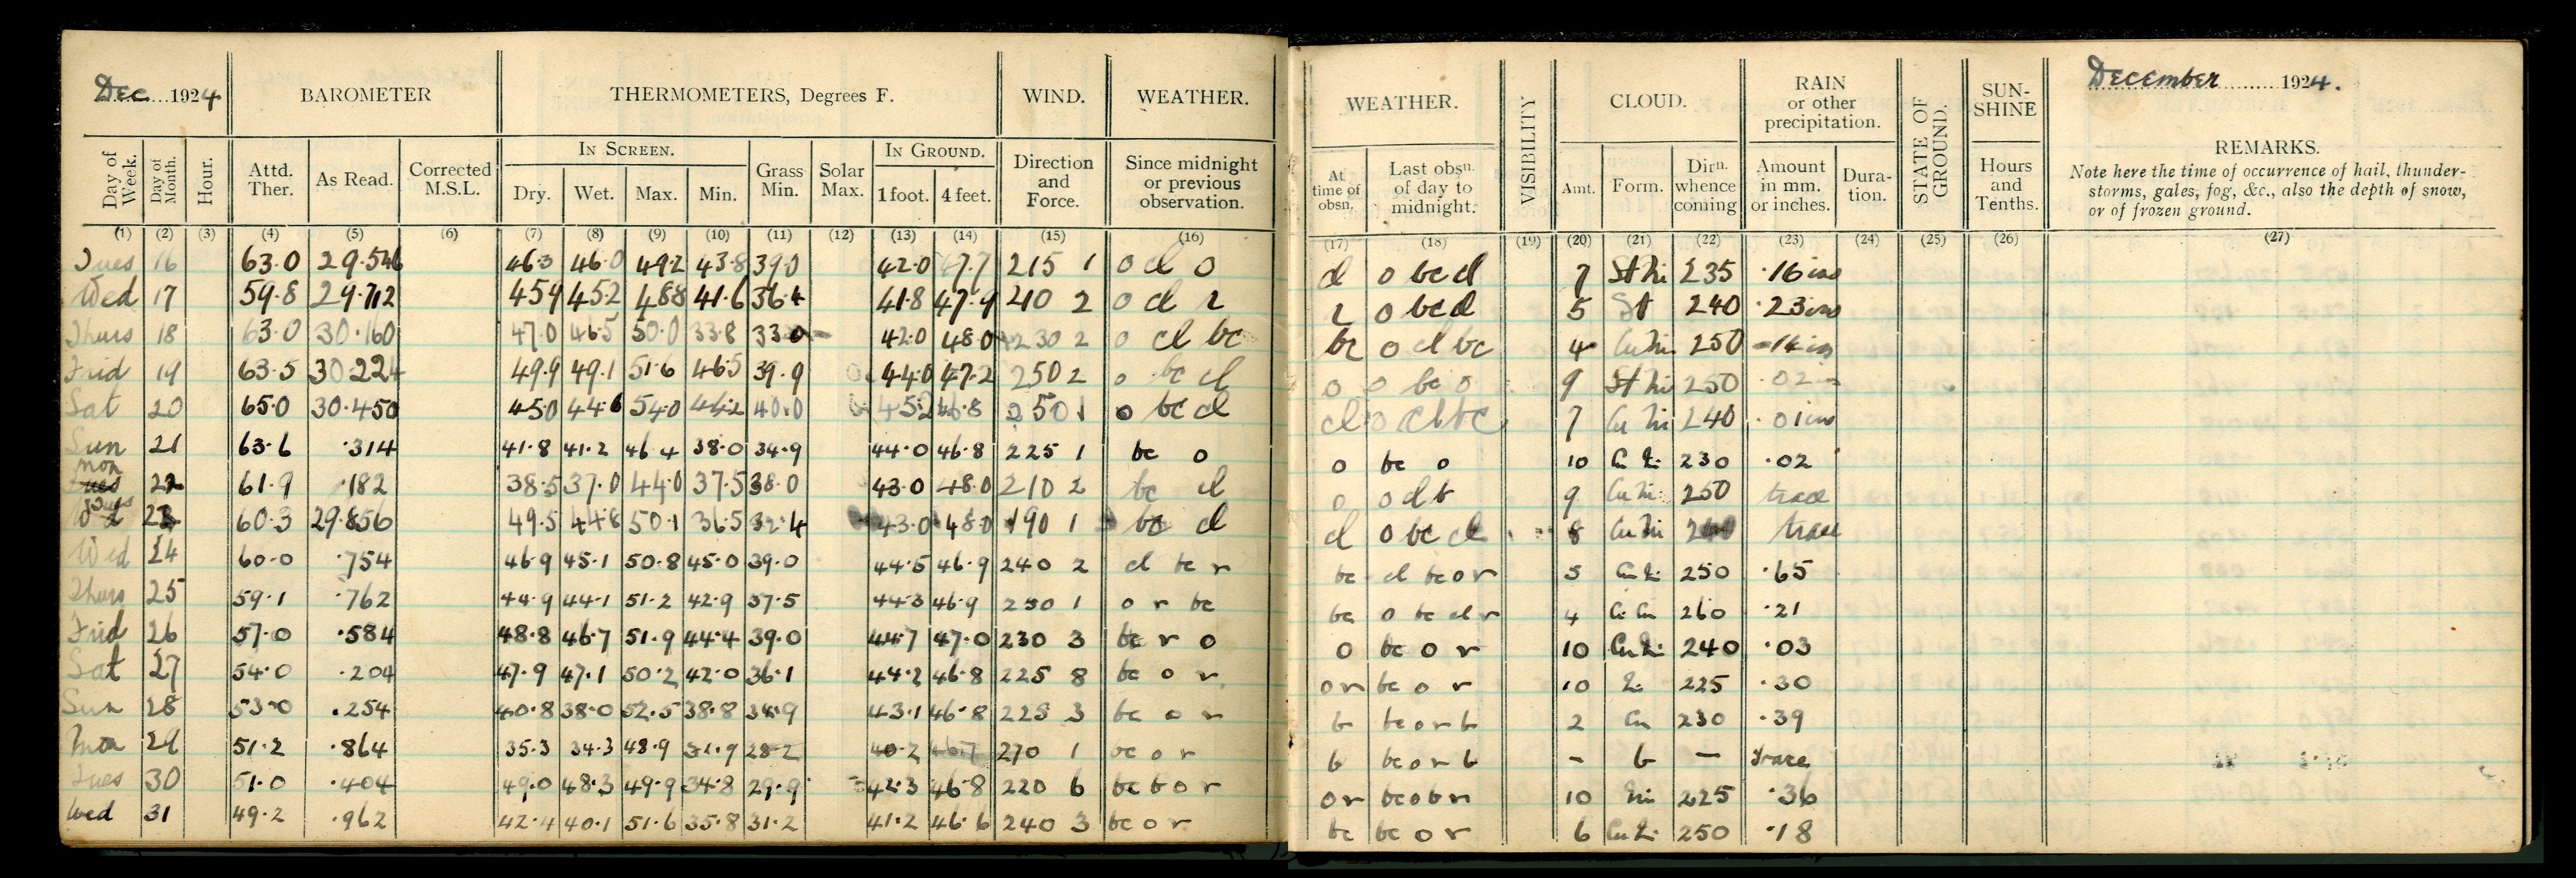 Dec 1924 BAROMETER THERMOMETERS, Degrees F. WIND. WEATHER.
Day of Week. Day of Month. Hour. Attd. Ther. As Read. Corrected M.S.L. IN SCREEN. Dry. Wet. Max. Min. Grass Min. Solar Max. IN GROUND. 1 foot. 4 feet. Direction and Force. Since midnight or previous observation.
(1) (2) (3) (4) (5) (6) (7) (8) (9) (10) (11) (12) (13) (14) (15) (16)
Tues 16 63.0 29.546 46.3 46.0 49.2 43.8 39.0 42.0 47.7 215 1 o d o
Wed 17 59.8 29.712 45.9 45.2 48.8 41.6 36.4 41.8 47.9 210 2 o d r
Thurs 18 63.0 30.160 47.0 46.5 50.0 33.8 33.0 42.0 48.0 230 2 o d bc
Frid 19 63.5 30.224 49.9 49.1 51.6 46.5 39.9 44.0 47.2 250 2 o bc d
Sat 20 65.0 30.450 45.0 44.6 54.0 44.2 40.0 45.2 46.8 250 1 o bc d
Sun 21 63.6 .314 41.8 41.2 46.4 38.0 34.9 44.0 46.8 225 1 bc o
Mon 22 61.9 .182 38.5 37.0 44.0 37.5 38.0 43.0 48.0 210 2 bc d
Tues 23 60.3 29.856 49.5 44.8 50.1 36.5 32.4 43.0 48.0 190 1 bc d
Wed 24 60.0 .754 46.9 45.1 50.8 45.0 39.0 44.5 46.9 240 2 d bc r
Thurs 25 59.1 .762 44.9 44.1 51.2 42.9 37.5 44.3 46.9 250 1 o r bc
Frid 26 57.0 .584 48.8 46.7 51.9 44.4 39.0 44.7 47.0 230 3 bc r o
Sat 27 54.0 .204 47.9 47.1 50.2 42.0 36.1 44.2 46.8 225 8 bc o r
Sun 28 53.0 .254 40.8 38.0 52.5 38.8 38.9 43.1 46.8 225 3 bc o r
Mon 29 51.2 .864 35.3 34.3 48.9 31.9 28.2 40.2 46.7 270 1 bc o r
Tues 30 51.0 .404 49.0 48.3 49.9 34.8 29.9 42.3 46.8 220 6 bc b o r
Wed 31 49.2 .962 42.4 40.1 51.6 35.8 31.2 41.2 46.6 240 3 bc o r
WEATHER. VISIBILITY CLOUD. RAIN or other precipitation. STATE OF GROUND. SUN-SHINE December 1924.
At time of obsn. Last obsn. of day to midnight. Amt. Form. Dirn. whence coming Amount in mm. or inches. Dura-tion. Hours and Tenths. REMARKS.
Note here the time of occurrence of hail, thunder-
storms, gales, fog, &c., also the depth of snow,
or of frozen ground.
(17) (18) (19) (20) (21) (22) (23) (24) (25) (26) (27)
d o bc d 7 St Ni 235 .16 ins
r o bc d 5 St 240 .23 ins
bc o d bc 4 Cu Ni 250 .14 in
o o bc o 9 St Ni 250 .02 in
d o d bc 7 Cu Ni 240 .01 ins
o bc o 10 Cu Ni 230 .02
o o d b 9 Cu Ni 250 trace
d o bc d 8 Cu Ni 240 trace
bc d bc o r 5 Cu Ni 250 .65
bc o bc d r 4 Ci Cu 260 .21
o bc o r 10 Cu Ni 240 .03
or bc o r 10 Ni 225 .30
b bc o r b 2 Cu 230 .39
b bc o r b - b - Trace
or bc o b r 10 Ni 225 .36
bc bc o r 6 Cu Ni 250 .18